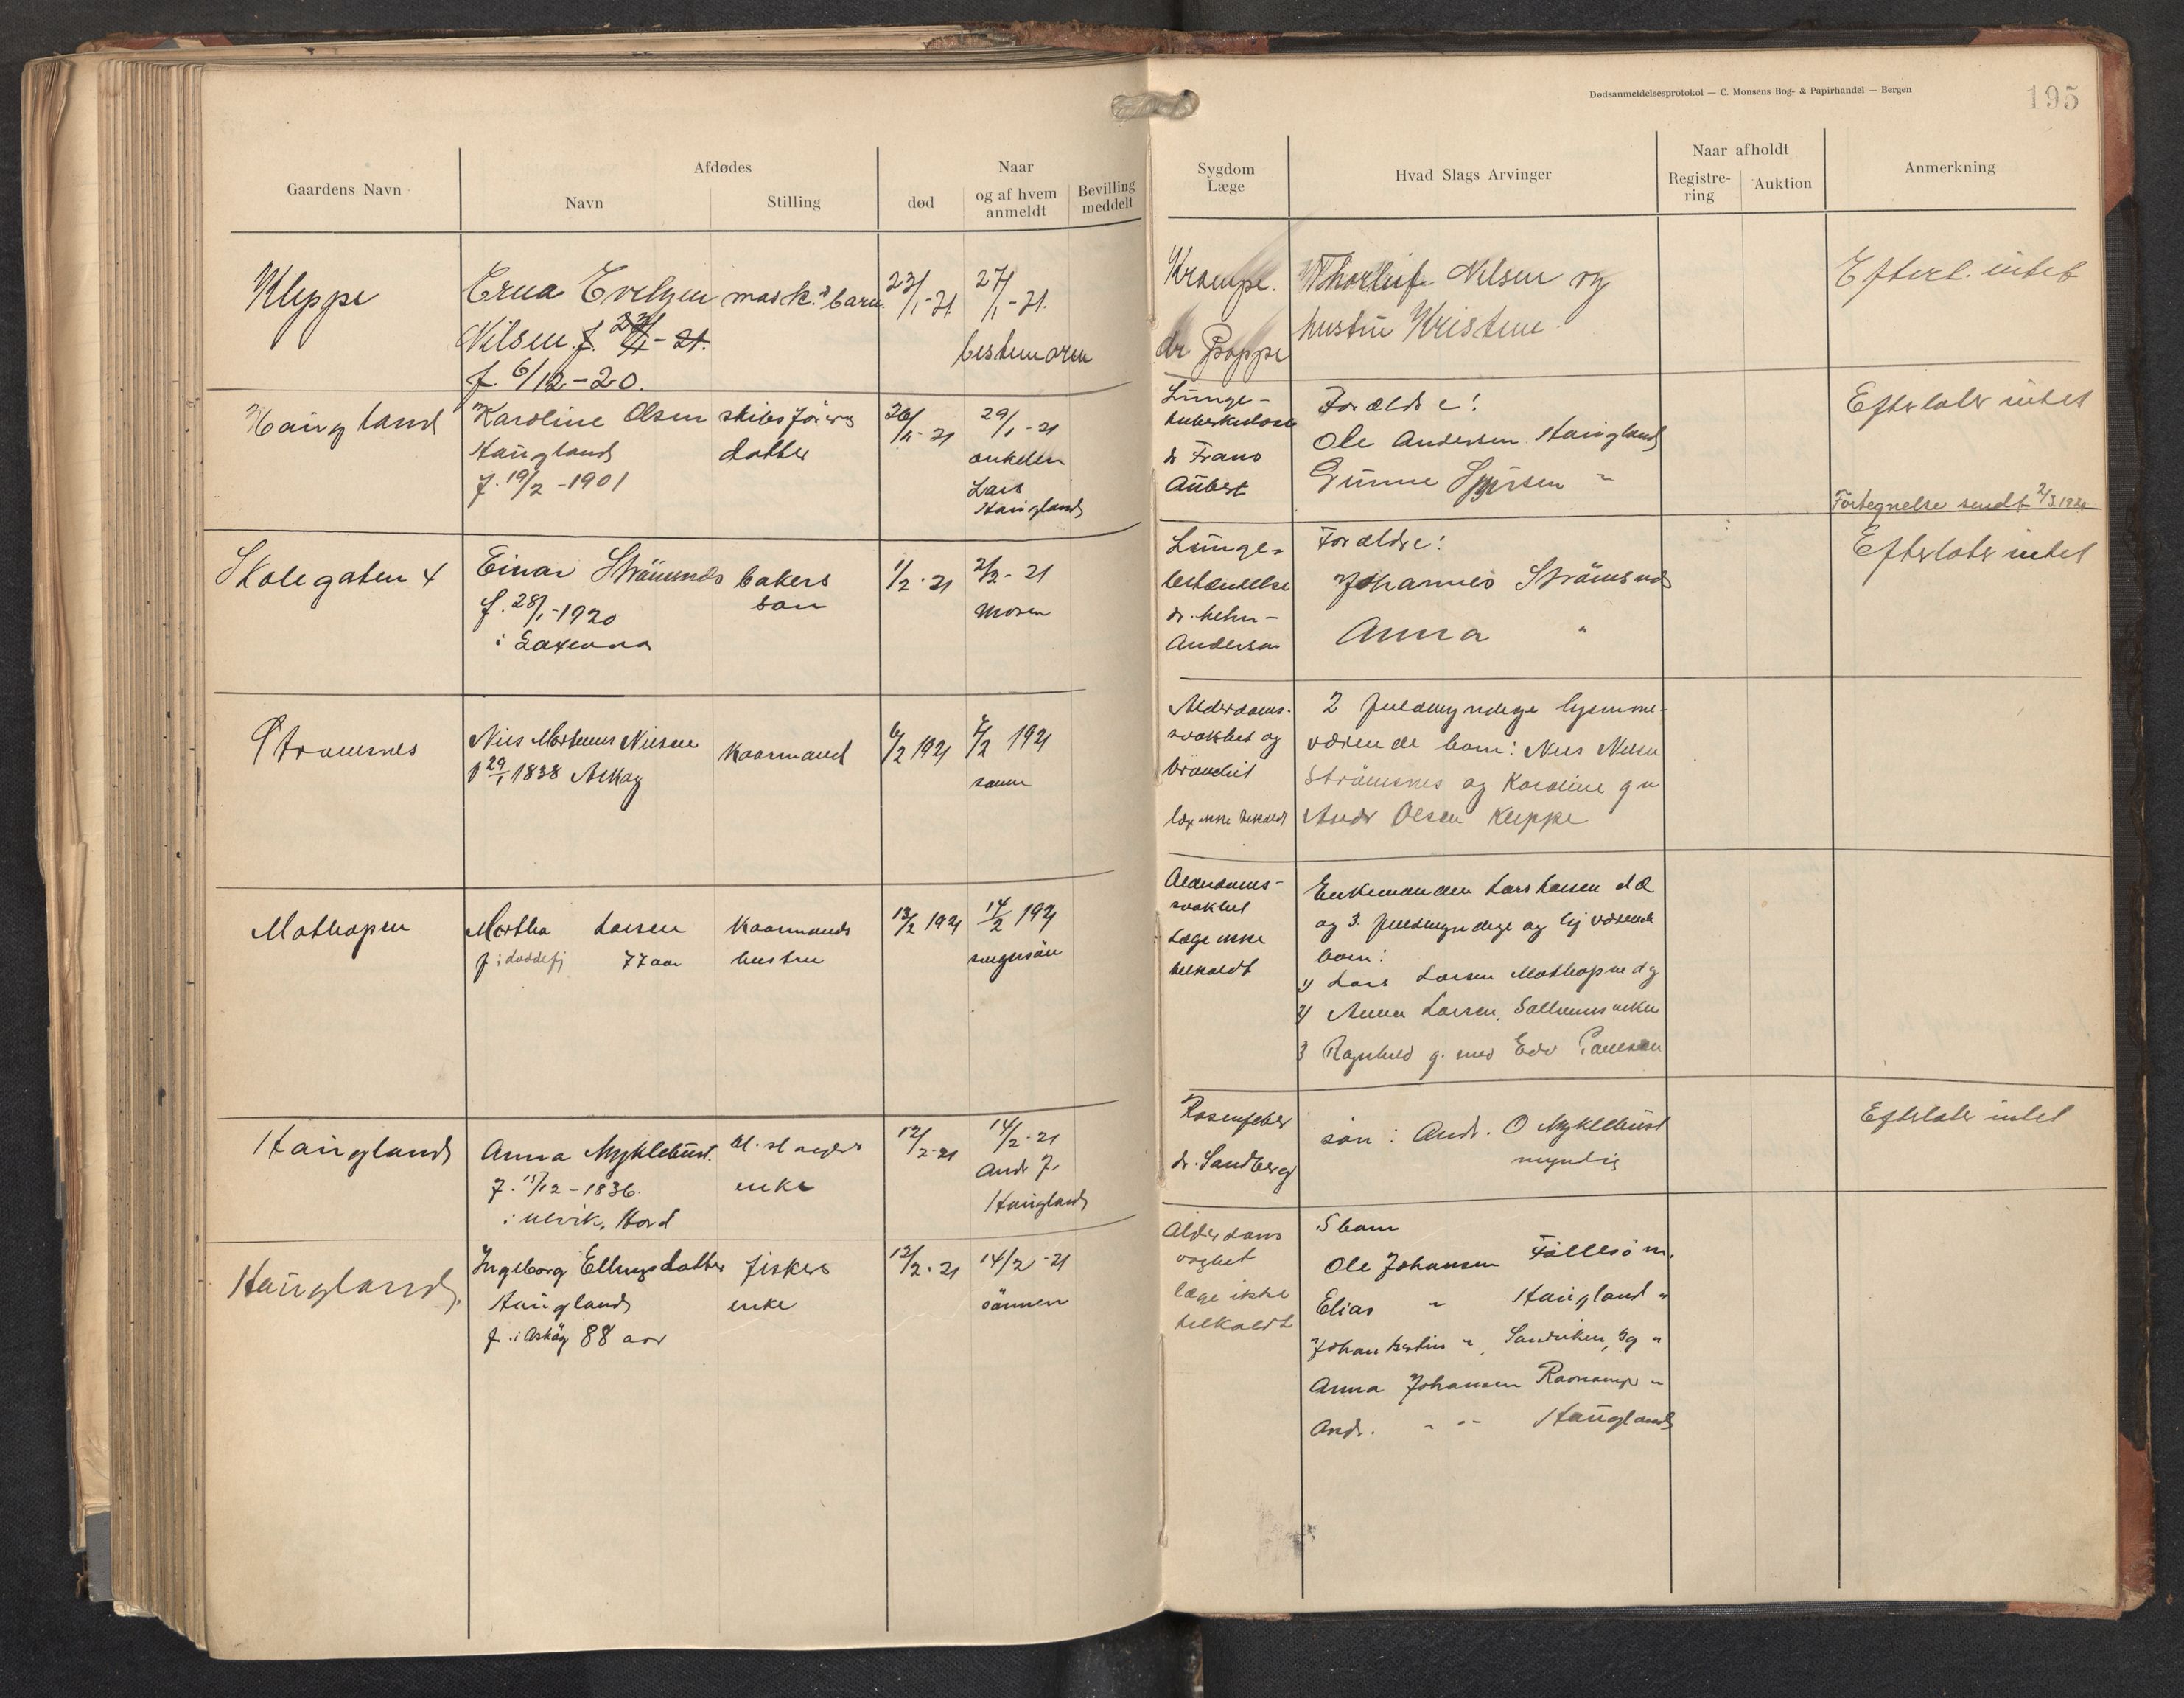 Dødsanmeldelsesprotokol — C. Monsens Bog- & Papirhandel — Bergen
195
Gaardens Navn
Afdødes
Navn
Stilling
død
Naar
og af hvem
anmeldt
Bevilling
meddelt
Sygdom
Læge
Hvad Slags Arvinger
Naar afholdt
Registre-
ring
Auktion
Anmerkning
Kleppe
Erna Evelyn
Nilsen f.
f. 6/12-20.
mask.s barn
23/1-21
27/1-21.
bestemoren
Krampe.
dr. Poppe
Thorleif Nilsen og
hustru Kristine
Efterl. intet
Haugland
Karoline Olsen
Haugland
f. 19/2-1901
skibsførers
datter
26/1-21
29/1-21
onkelen
Lars
Haugland
Lunge-
tuberkulose
dr Frans
Aubert
Forældre:
Ole Andersen Haugland
Gunne "
Efterlater intet
Fortegnelse sendt
Skolegaten 4
Einar Strömsnes
f. 28/1-1920
i Laxevaag
bakers
søn
1/2-21
2/2-21
Moren
Lunge-
betændelse
dr.
Anderson
Forældre:
Johannes Strömsnes
Anna "
Efterlater intet
Strømsnes
Nils Mortinus Nilsen
f 29/1 1838 Askøy
Kaarmand
6/2 1921
7/2 1921
sønn
Alderdoms-
svakhet og
bronchit
læge ikke tilkaldt
2 fuldmyndige hjemme-
værende barn: Nils Nilsen
Strömsnes og Karoline g m
Andr Olsen Kleppe
Mathopen
Martha Larsen
f i Loddefj 77 aar
Kaarmands
hustru
13/2 1921
14/2 1921
svigersön
Alderdoms-
svakhet
Læge ikke
tilkaldt
Enkemanden Lars Larsen d.æ
og 3 fuldmyndige og tilværende
barn:
1) Lars Larsen Mathopen d y
2) Anna Larsen,
3 Ragnhild g. med Edv Paulsen
Haugland
Anna Myklebust.
f. 15/12-1836.
i Ulvik, Hard
enke
12/2-21
14/2-21
Andr J.
Haugland
Rosenfeber
dr. Sandberg
søn: Andr. O Myklebust
myndig
Efterlater intet
Haugland
Ingeborg Ellingsdatter
Haugland
f. i Askøy 88 aar
fiskers
enke
12/2-21
14/2-21
sönnen
Alderdoms
svaghet
læge ikke
tilkaldt
5 barn
Ole Johansen Follesö m.
Elias " Haugland "
Johan " Sandviken, Bg "
Anna Johansen "
Andr. " " Haugland